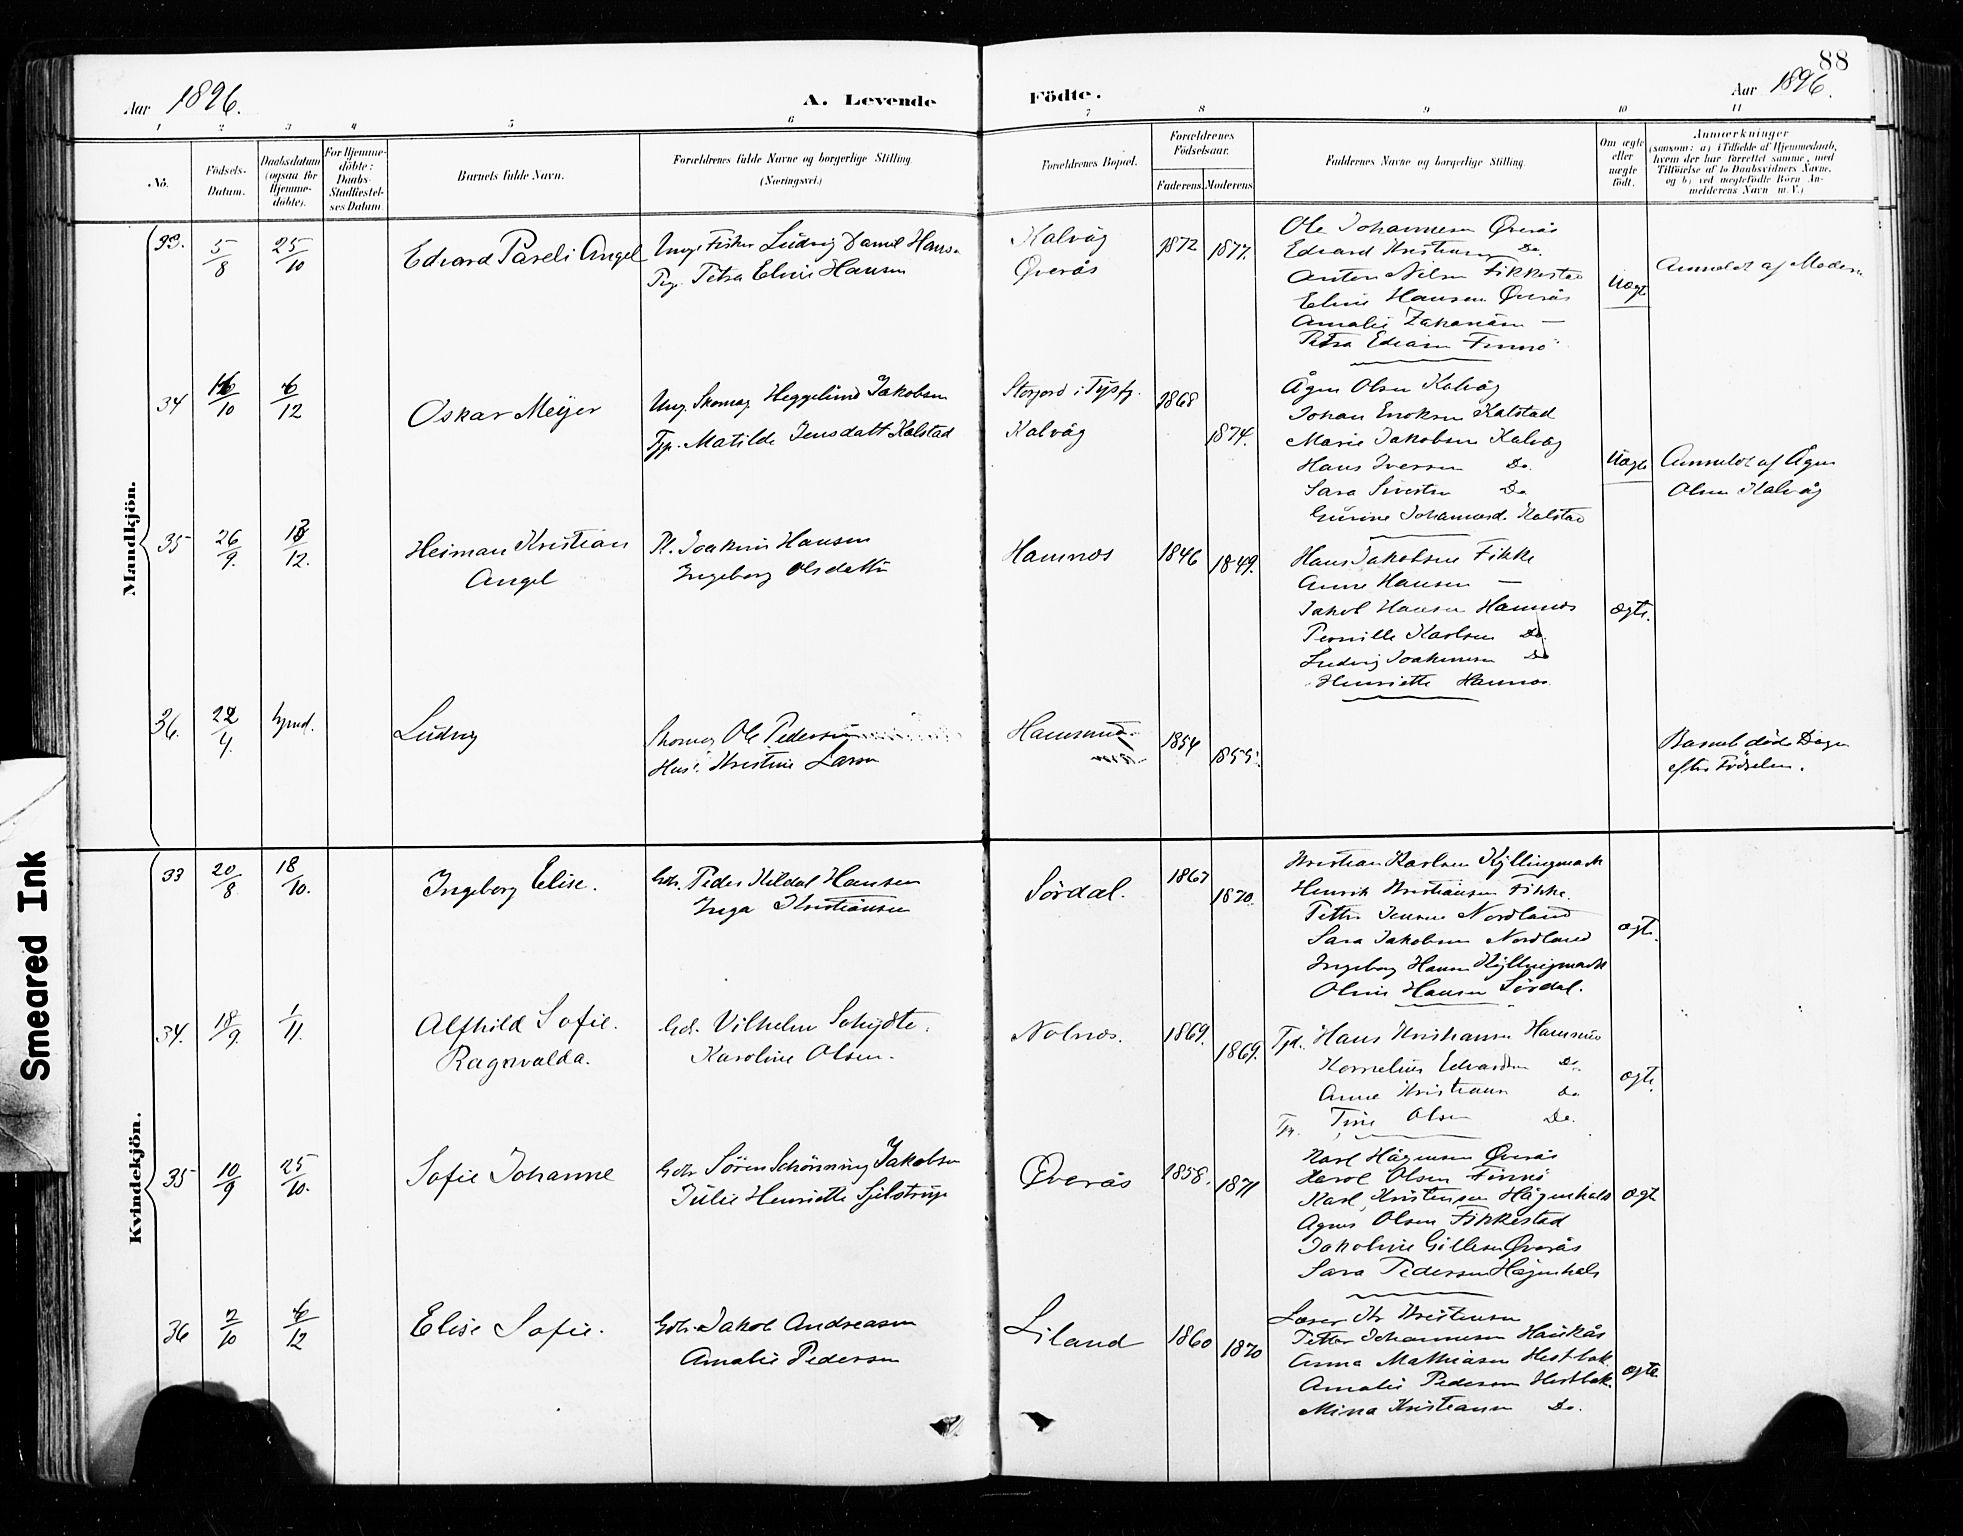 88
Aar 1896.
A. Levende
Födte.
Aar 1896.
1 2 3 4 5 6 7 8 9 10 11
No.
Födsels-
Datum.
Daabsdatum
(ogsaa for
Hjemme-
döbte).
For Hjemme-
döbte:
Daabs-
Stadfæstel-
ses Datum
Barnets fulde Navn.
Forældrenes fulde Navne og borgerlige Stilling.
(Næringsvei.)
Forældrenes Bopæl.
Forældrenes
Födselsaar.
Faderens.
Moderens.
Faddernes Navne og borgerlige Stilling.
Om ægte
eller
uægte
födt.
Anmærkninger
(saasom: a) i Tilfælde af Hjemmedaab,
hvem der har forrettet samme, med
Tilföielse af to Daabsvidners Navne,
og b) ved uægtefödte Börn An-
melderens Navn m. V.)
Mandkjön.
33. 5/8 25/10
Edvard Pareli Angel
Ung. Fisker Ludvig Daniel Hans
Pg. Petra Eline Hansen
Kalvåg
Øverås
1872 1877.
Ole Johannesen Øverås
Edvard Kristiansen Do
Anton Nilsen Fikkestad
Eline Hansen Øverås
Amalie Zakariasen —
Petra Finnö
Uægte
Anmeldt af Moderen
34 16/10 6/12
Oskar Meyer
Ung. Skomag Heggelund Jakobsen
Tjp. Matilde Jensdatt Kalstad
Storjord i Tysfj.
Kalvåg
1868
1874.
Ågen Olsen Kalvåg
Johan Enoksen Kalstad
Marie Jakobsen Kalvåg
Hans Iversen Do.
Sara Sivertsen Do
Gurine Johannesd. Kalstad
Uægte
Anmeldt af Ågen
Olsen Kalvåg
35 26/9. 13/12.
Heiman Kristian
Angel
Joakim Hansen
Ingeborg Olsdatter
Hamnæs
1846 1849.
Hans Jakobsen Fikke
Anne Hansen —
Jakob Hansen Hamnæs
Pernille Karlsen Do.
Ludvig Joakimsen Do
Henriette Hamnæs
ægte.
36. 22/4.
Ludvig
Skomag Ole Pedersen
Hus. Kristine Larsen
Hamsund
1854
1855.
Barnet döde Dagen
efter Födselen.
Kvindekjön.
33 20/8 18/10.
Ingeborg Elise.
Gdr. Peder Kildal Hansen
Inga Kristiansen
Sördal.
1867
1870.
Kristian Karlsen Kyllingmark
Henrik Kristiansen Fikke.
Petter Jensen Nordland
Sara Jakobsen Nordland
Ingeborg Hansen Kyllingmark
Oline Hansen Sördal.
ægte.
34. 18/9. 1/11.
Alfhild Sofie.
Ragnvalda.
Gdr. Vilhelm Schjøtte.
Karoline Olsen.
Nolnæs.
1869.
1869.
Tjd. Hans Kristiansen Hamsund
Kornelius Edvardsen Do.
Anne Kristiansen Do
Tjp. Tine Olsen Do.
ægte.
35 10/9 25/10.
Sofie Johanne
Gdr Sören Schönning Jakobsen
Julie Henriette Sjelstrup
Øverås
1858.
1871
Karl Hågensen Øverås
Karol Olsen Finnö
Karl Kristensen Hågenhals
Agnes Olsen Fikkestad
Jakobine Gillesen Øverås
Sara Pedersen Hågenhals
ægte
36 2/10 6/12
Elise Sofie.
Gdr. Jakob Andreasen
Amalie Pedersen
Liland
1860
1870
Laser Kr Kristensen
Petter Johannesen Haukås
Anna Mathiasen Hestbak.
Amalie Pedersen Hestbak.
Mina Kristiansen Do.
ægte.
Smeared Ink